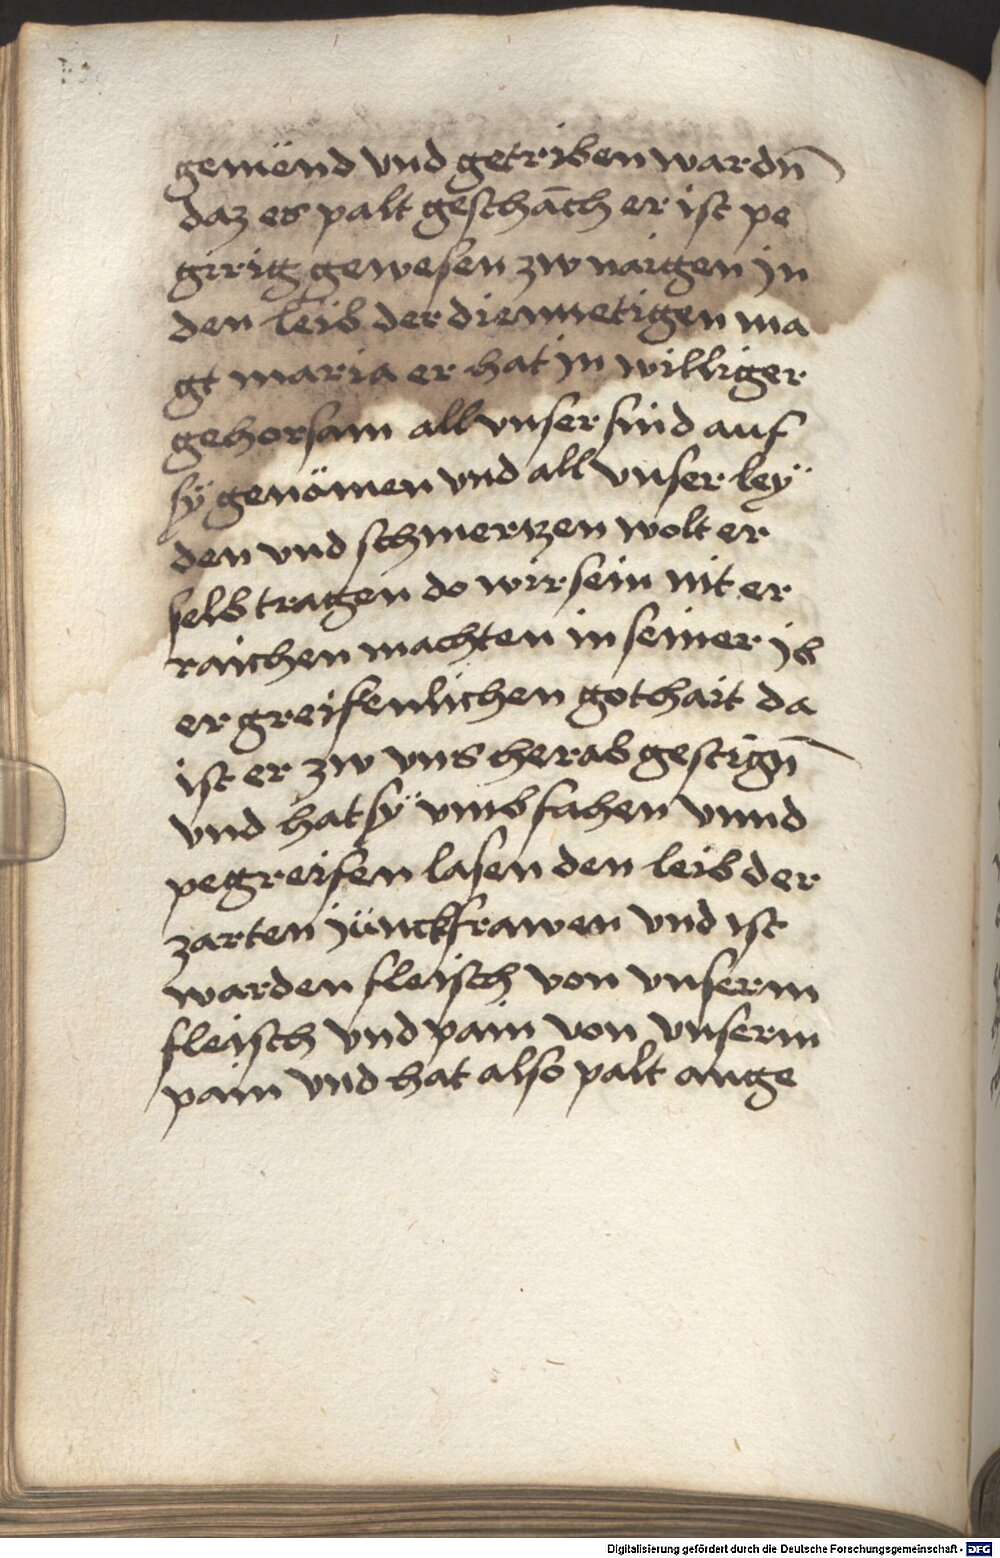 gemüend vnd getriben wardn̄
daz es palt geschāch er ist pe
girrig gewesen zw naigen jn
den leib der diemuetigen ma
gt maria er hat jn williger
gehorsam all vnser sünd auf
sÿ genömen vnd all vnser leÿ
den vnd schmertzen wolt er
selb tragen do wir sein nit er
raichen machten in seiner jb
er greifenlichen gothait da
ist er zw vns herab gestign̄
vnd hat sÿ vmbfahen vnnd
pegreifen lasen den leib der
zarten jünckfrawen vnd ist
warden fleisch von vnserm
fleisch vnd pain von vnserm
pain vnd hat also palt ange
Digitalisierung gefördert durch die Deutsche Forschungsgemeinschaft - DFG